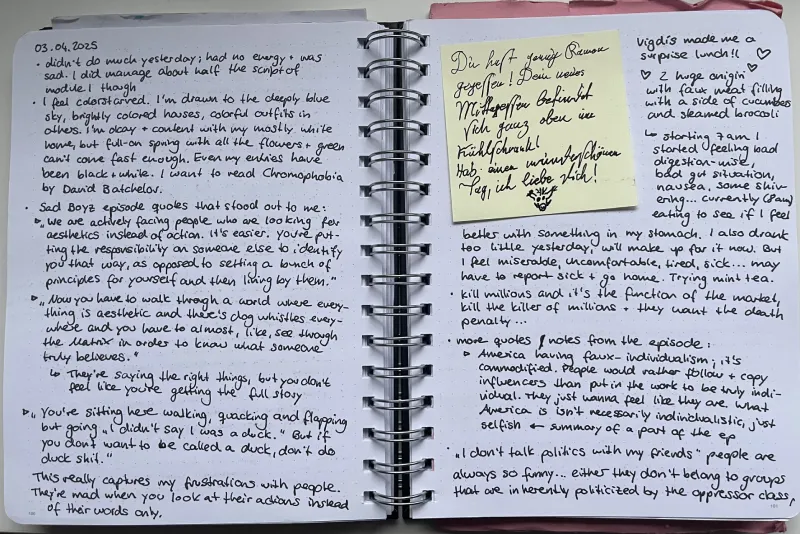 03.04.2025
• didn't do much yesterday; had no energy + was
sad. I did manage about half the script of
module 1 though
• I feel colorstarved. I'm drawn to the deeply blue
sky, brightly colored houses, colorful outfits in
others. I'm okay + content with my mostly white
home, but full-on spring with all the flowers + green
can't come fast enough. Even my entries have
been black + white. I want to read Chromophobia
by David Batchelor.
• Sad Boyz episode quotes that stood out to me:
▹ „We are actively facing people who are looking for
aesthetics instead of action. It's easier. You're put-
ting the responsibility on someone else to identify
you that way, as opposed to setting a bunch of
principles for yourself and then living by them."
▹ „Now you have to walk through a world where every-
thing is aesthetic and there's dog whistles every-
where and you have to almost, like, see though
the Matrix in order to know what someone
truly believes."
↳ They're saying the right things, but you don't
feel like you're getting the full story
▹ „You're sitting here walking, quacking and flapping
but going „I didn't say I was a duck." But if
you don't want to be called a duck, don't do
duck shit."
This really captures my frustrations with people.
They're mad when you look at their actions instead
of their words only.
Du hast genug Ramen
gegessen! Dein neues
Mittagessen befindet
sich ganz oben im
Kühlschrank!
Hab einen wunderschönen
Tag, ich liebe dich!
Vigdis made me a
surprise lunch!! ♡
♡ 2 huge onigiri
with faux meat filling
with a side of cucumbers
and steamed broccoli
↳ starting 7am I
started feeling bad
digestion-wise,
bad gut situation,
nausea, some shiv-
ering... currently (8am)
eating to see if I feel
better with something in my stomach. I also drank
too little yesterday, will make up for it now. But
I feel miserable, uncomfortable, tired, sick... may
have to report sick + go home. Trying mint tea.
• kill millions and it's the function of the market,
kill the killer of millions + they want the death
penalty...
• more quotes / notes from the episode:
▹ America having faux-individualism; it's
commodified. People would rather follow + copy
influencers than put in the work to be truly indi-
vidual. They just wanna feel like they are. What
America is isn't necessarily individualistic, just
selfish ← summary of a part of the ep
• „I don't talk politics with my friends" people are
always so funny... either they don't belong to groups
that are inherently politicized by the oppressor class,